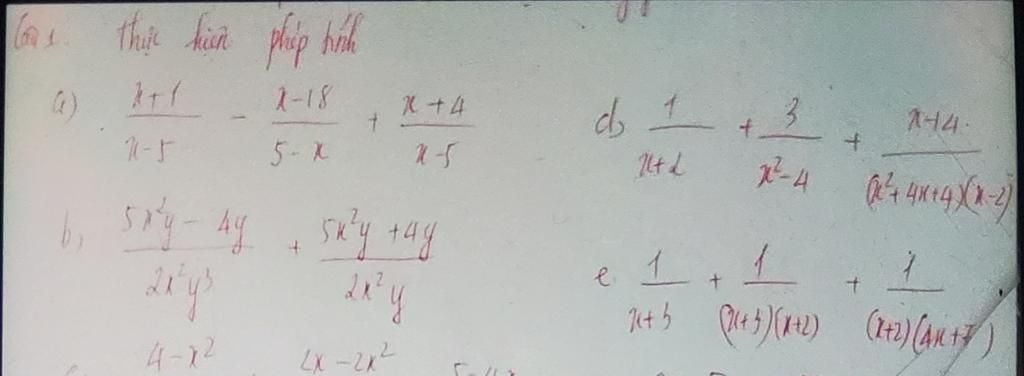 thực hiện phép tính
a) \frac{x+1}{x-5} - \frac{x-18}{5-x} + \frac{x+4}{x-5}
b, \frac{5x^2y - 4y}{2x^2y^3} + \frac{5x^2y + 4y}{2x^2y}
4-x^2 2x-2x^2
d, \frac{1}{x+2} + \frac{3}{x^2-4} + \frac{x-14}{(x^2+4x+4)(x-2)}
e. \frac{1}{x+3} + \frac{1}{(x+3)(x+2)} + \frac{1}{(x+2)(4x+7)}